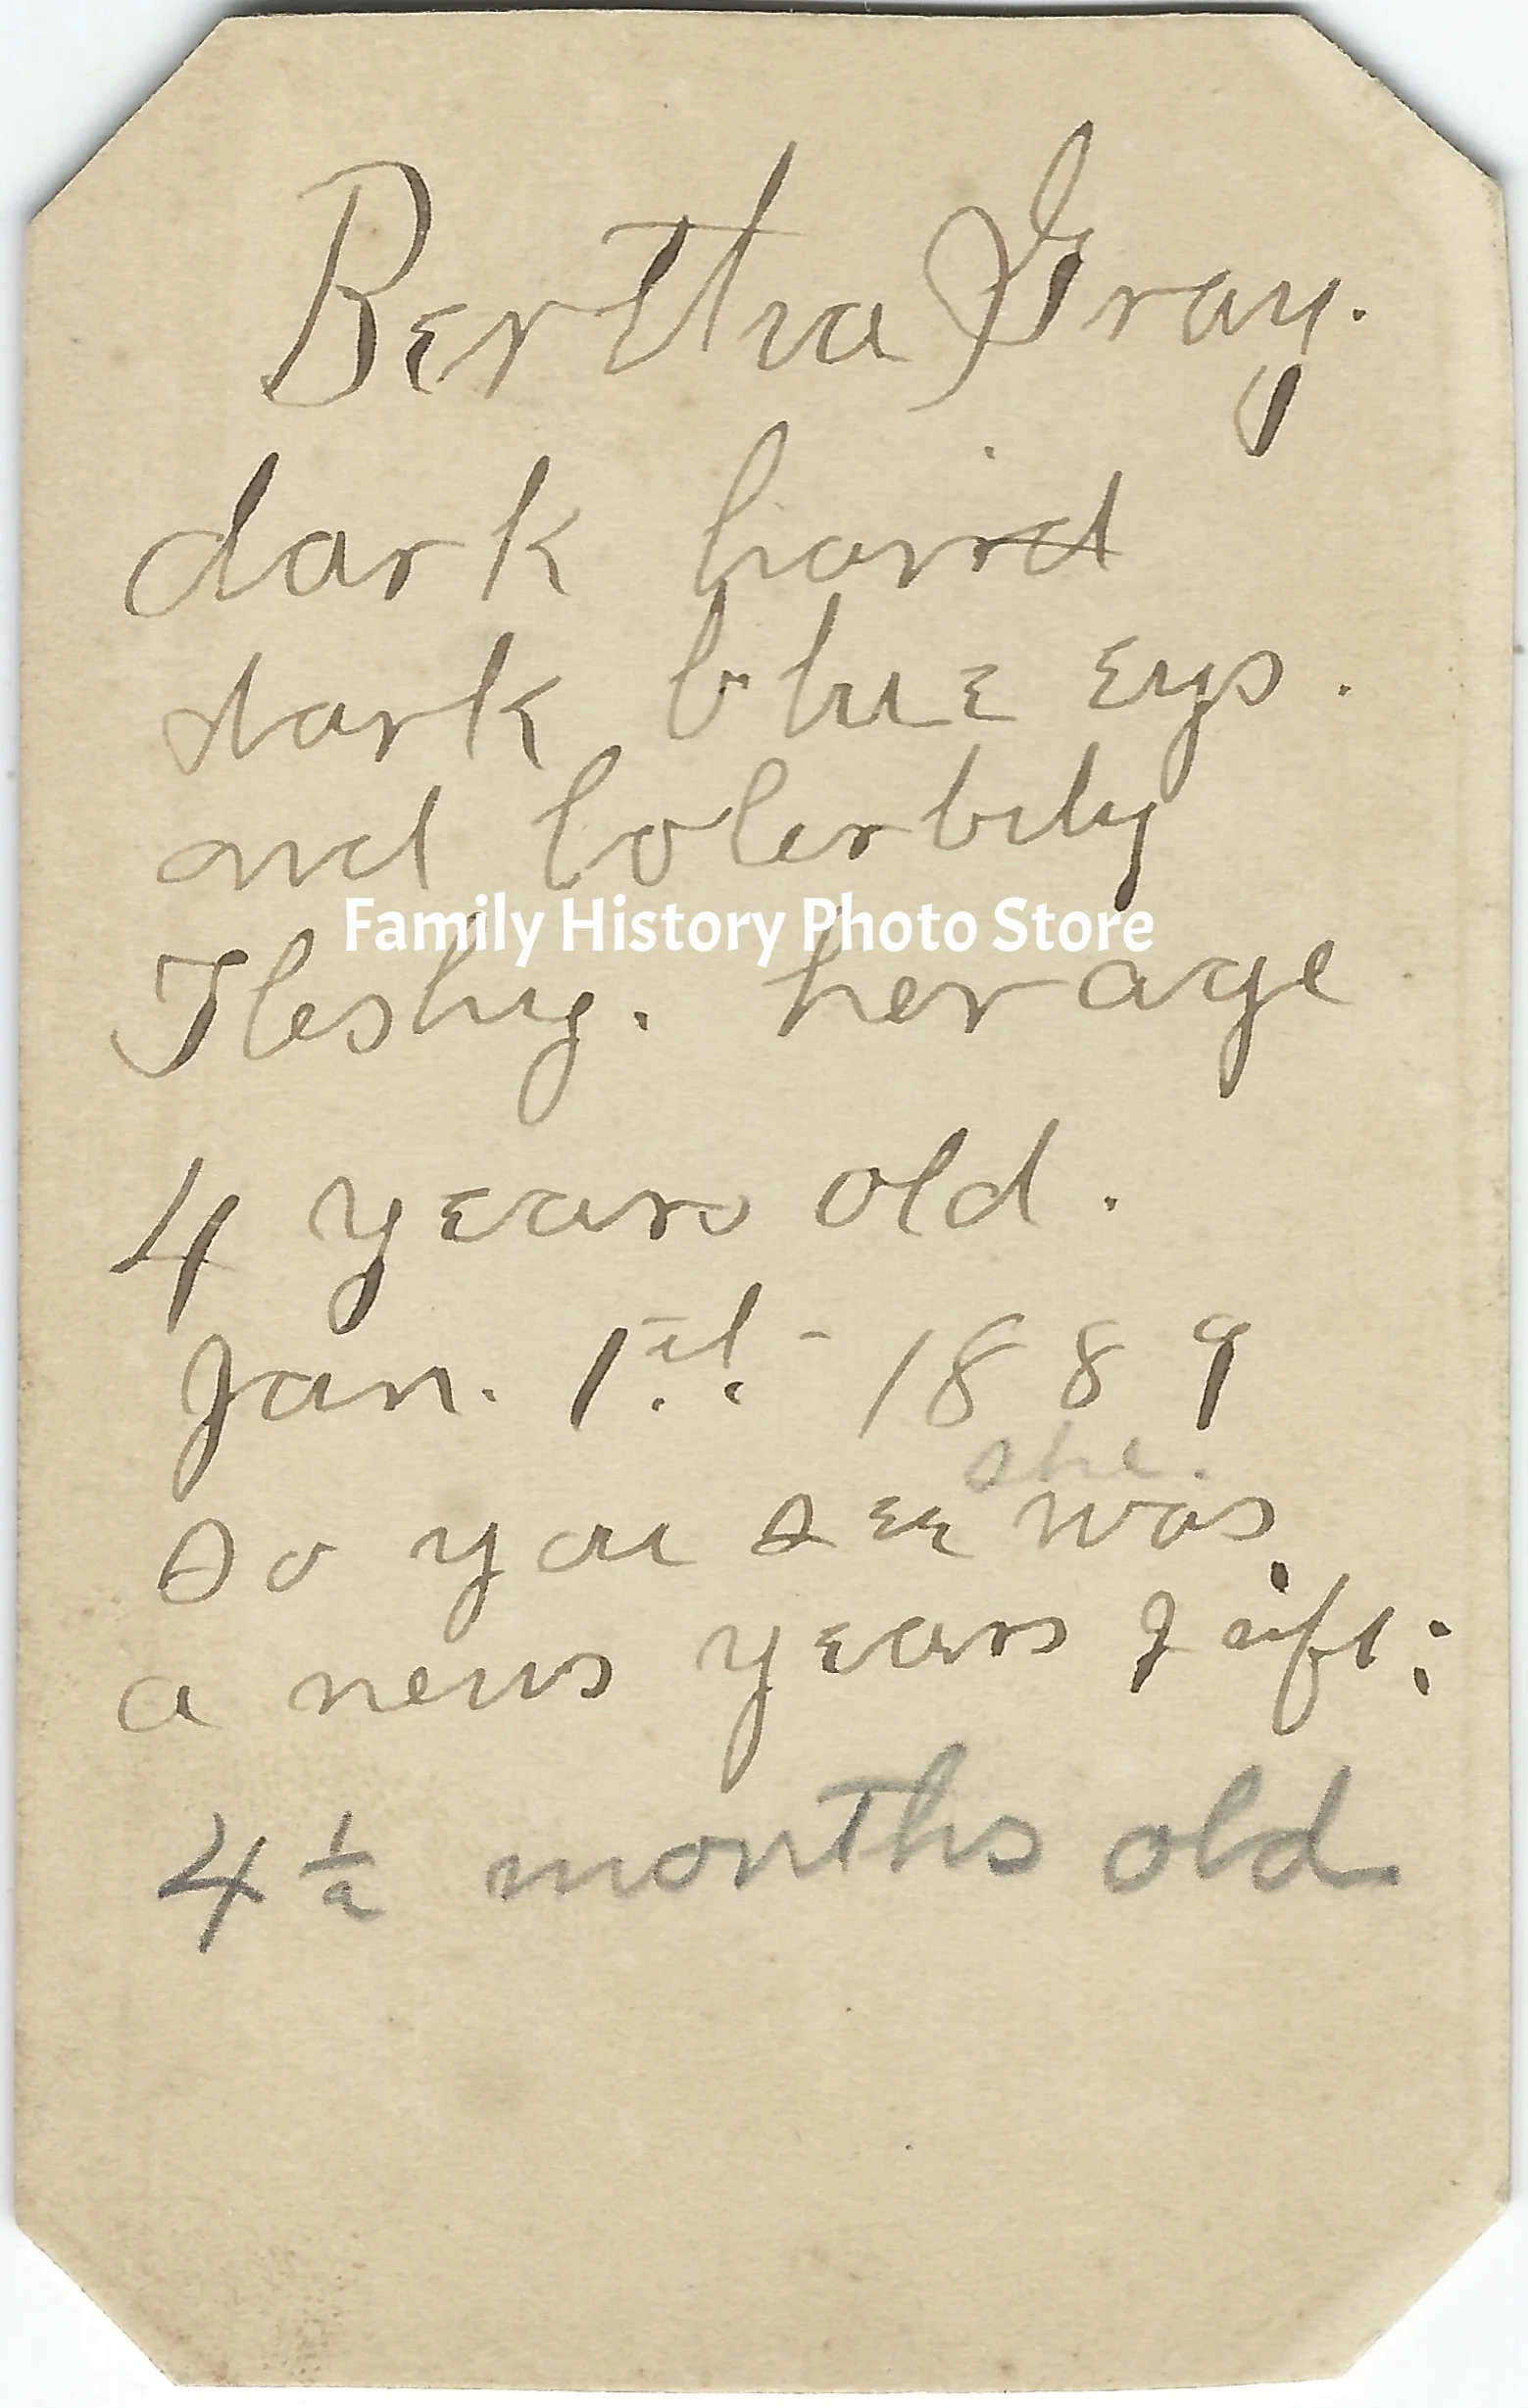 Bertha Gray.
dark haird
dark blue eys.
and tolerbuly
Family History Photo Store
Fleshy. her age
4 years old.
Jan. 1st - 1889
she.
So you see was
a news years gift;
4 1/2 months old